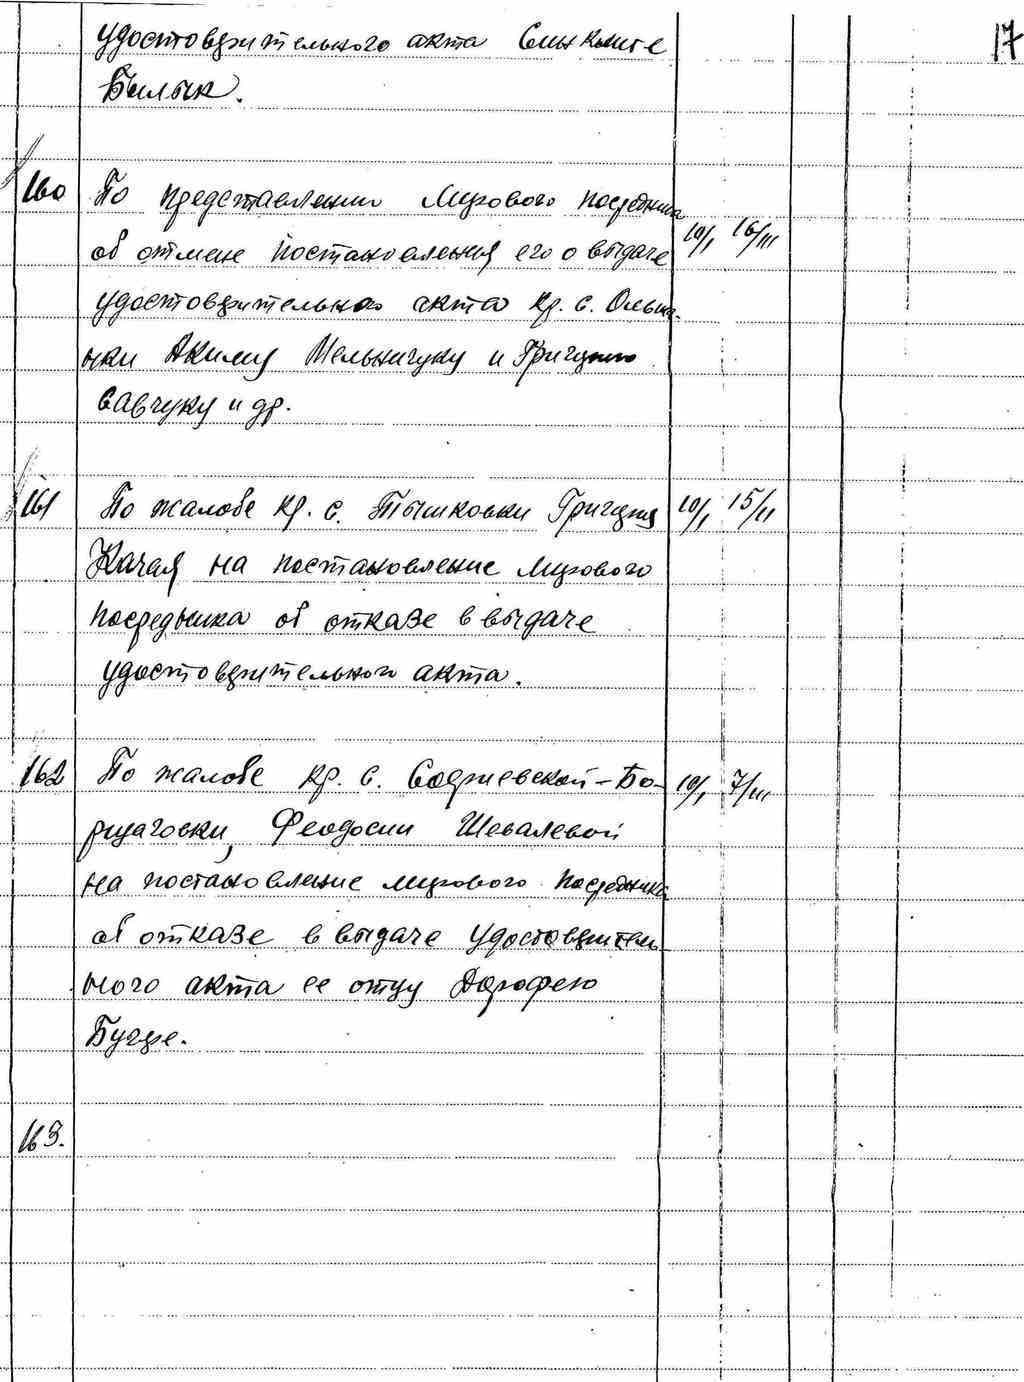 17
удостоверительного акта Синклите
Билык.
160 По представлении Мирового посредника 10/I 16/III
об отмене постановления его о выдаче
удостоверительного акта кр. с. Ольша-
нки Акиму Мельничуку и Григорию
Савчуку и др.
161 По жалобе кр. с. Тышковки Григория 10/I 15/II
Качая на постановление Мирового
посредника об отказе в выдаче
удостоверительного акта.
162 По жалобе кр. с. Софиевской-Бо- 10/I 7/III
рщаговки, Феодосии Шевалевой
на постановление мирового посредника
об отказе в выдаче удостоверитель
ного акта ее отцу Дорофею
Бугре.
163.